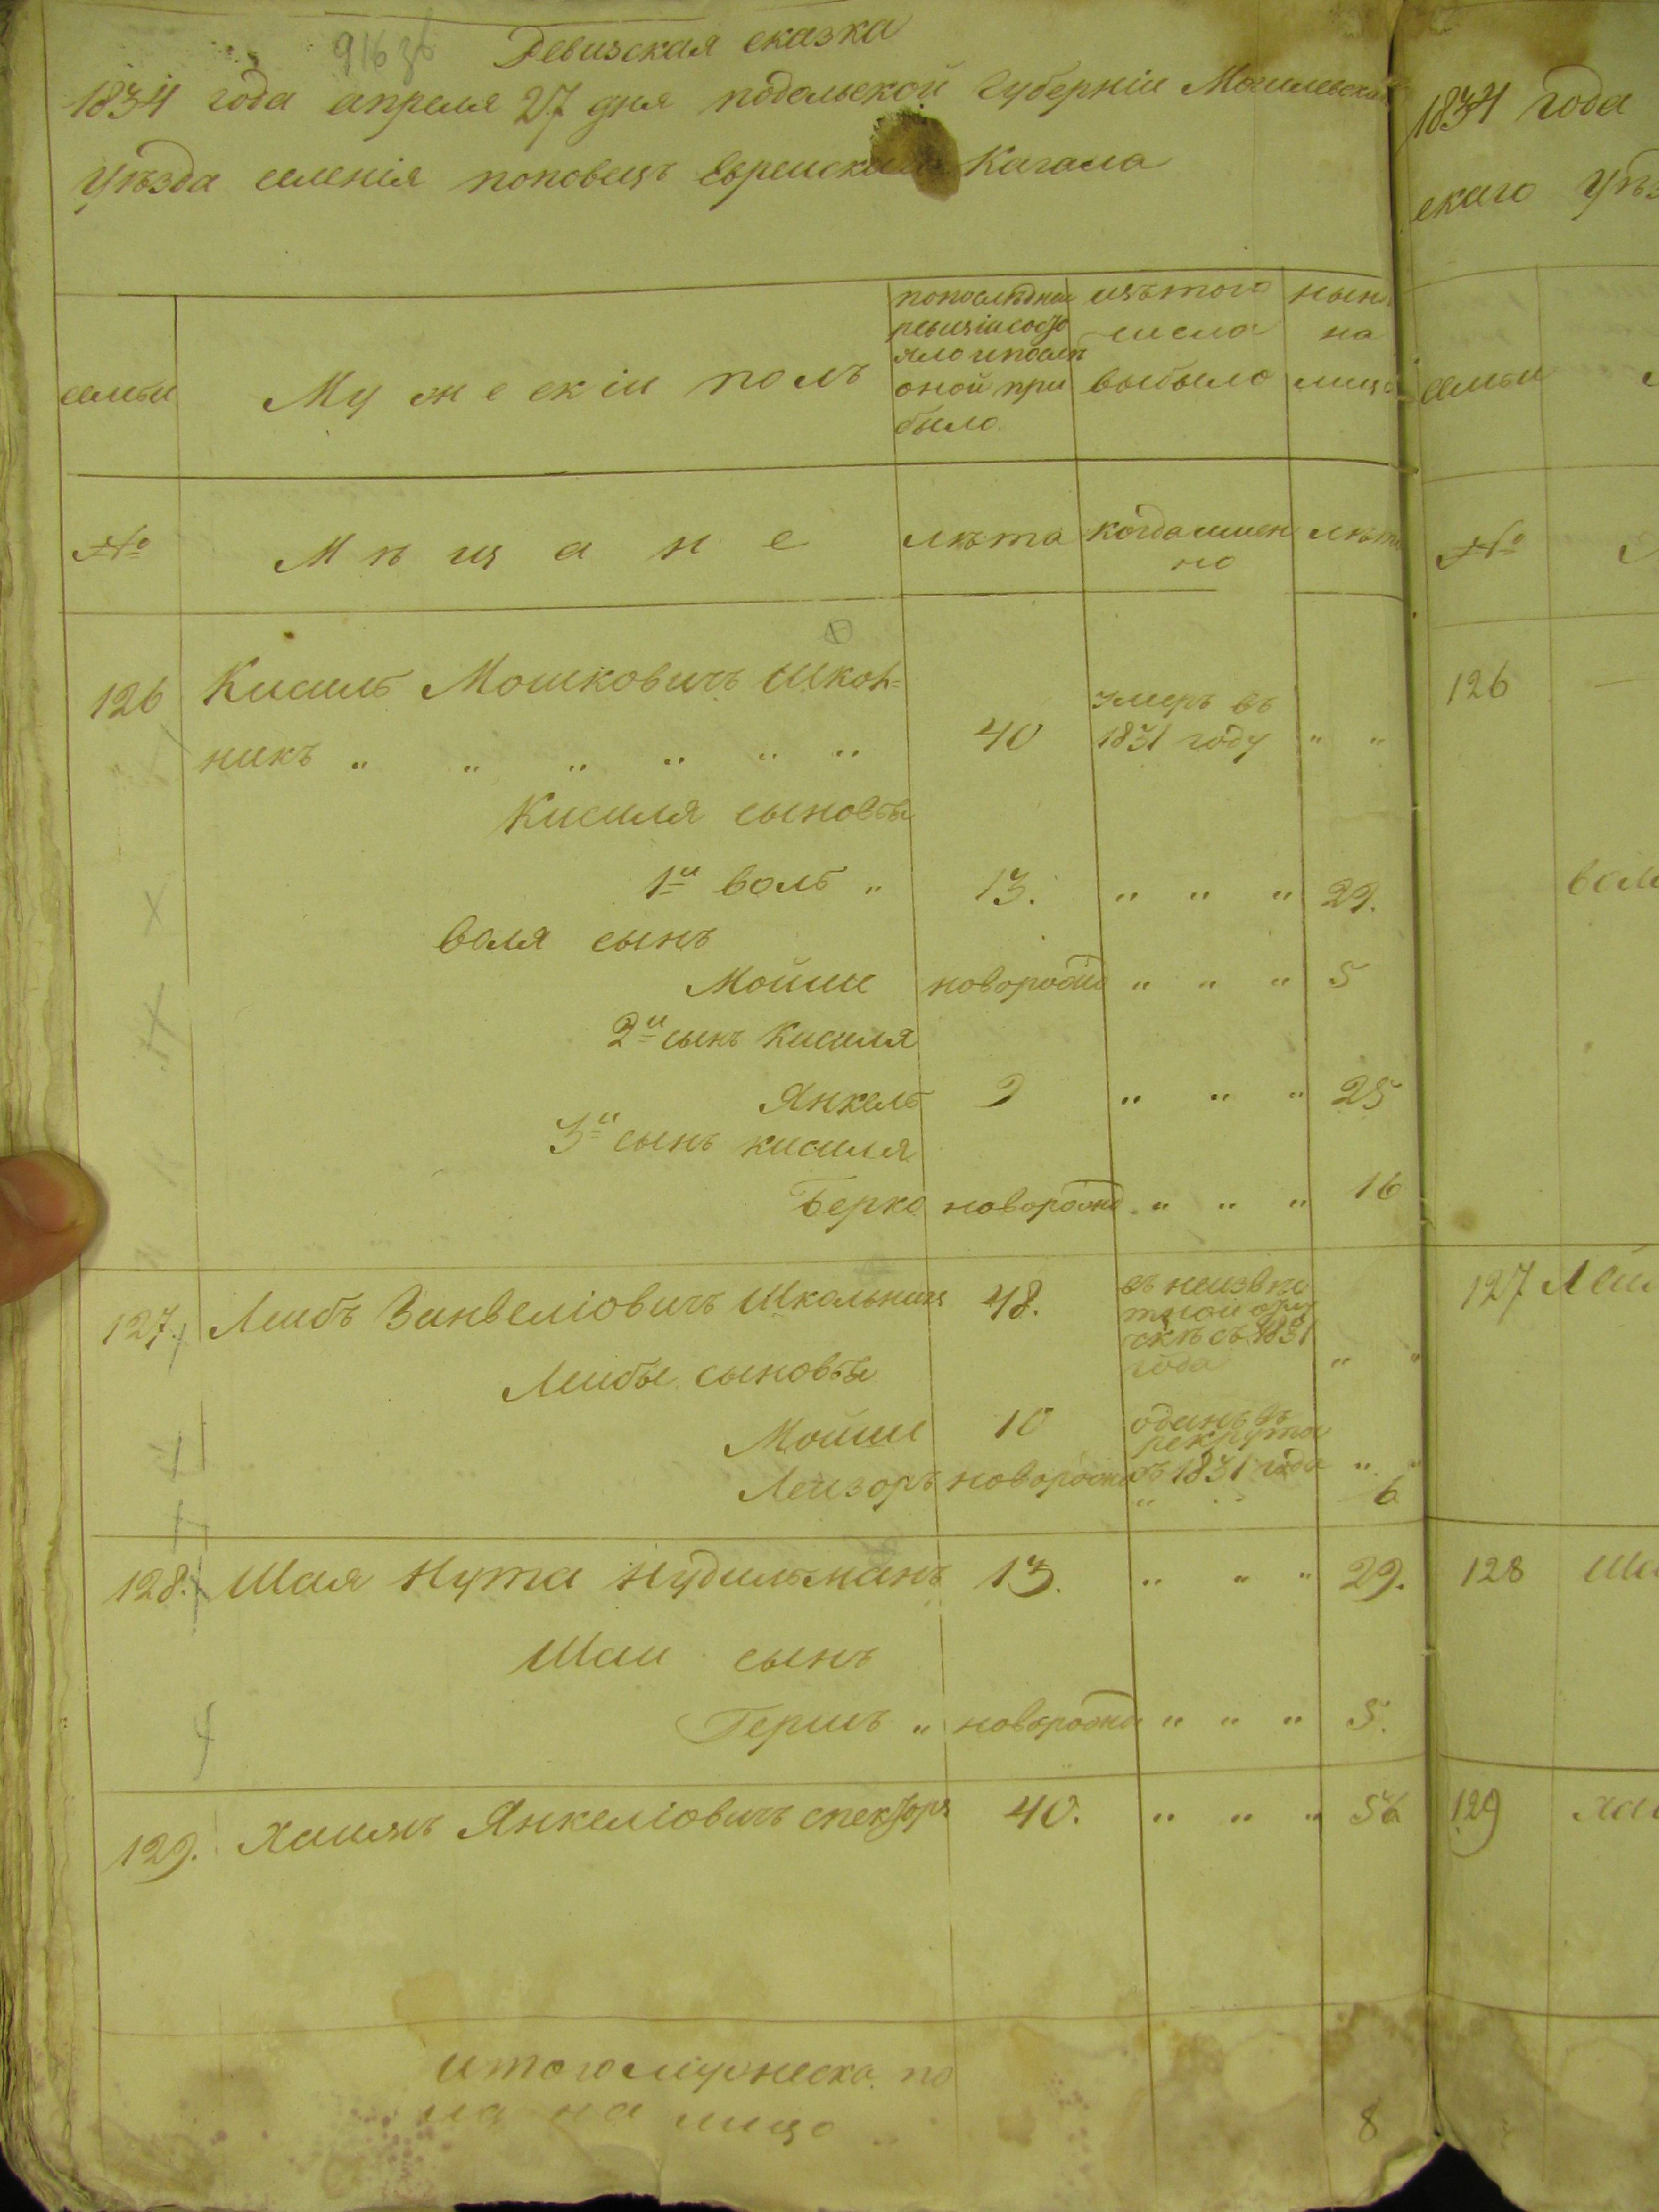 Ревизская сказка
1834 года апреля 27 дня подольской Губерніи Могилевскаго
Уѣзда селенія поповецъ Еврейскаго Кагала
семьи
Мужескіи полъ
попослѣдней
ревизіи состо
яло и послѣ
оной при
было.
изътого
числа
выбыло
нынѣ
на
лицо
№
Мѣщане
лѣта
когда имен
но
лѣта
126 Кисиль Мошковичъ Школ=
никъ „ „ „ „ „ „ 40 умеръ въ
1831 году „ „
Кисиля сыновья
1й воль „ 13. „ „ „ 29.
воля сынъ
Мойше новорожд „ „ „ 5
2й сынъ Кисиля
Янкель 9 „ „ „ 25
3й сынъ кисиля
Берко новорожд „ „ „ 16
127. Леибъ Зинвеліовичъ Школьникъ 48. въ неизвѣс
тной отлу
чкѣ съ 1831
года „ „
Леибы сыновья
Мойше 10 отданъ въ
рекруты
Леизоръ новорожд въ 1831 года „ „
„ „ 6
128. Шая Нута Нудильманъ 13. „ „ „ 29.
Шаи сынъ
Гершъ „ новорожд „ „ „ 5.
129. Хаимъ Янкеліовичъ спекторъ 40. „ „ „ 56
итого мужеска по
ла на лицо 8
1834 года
скаго Уѣз
семьи
№
126
вол
127 Леи
128 Ша
129 хаи